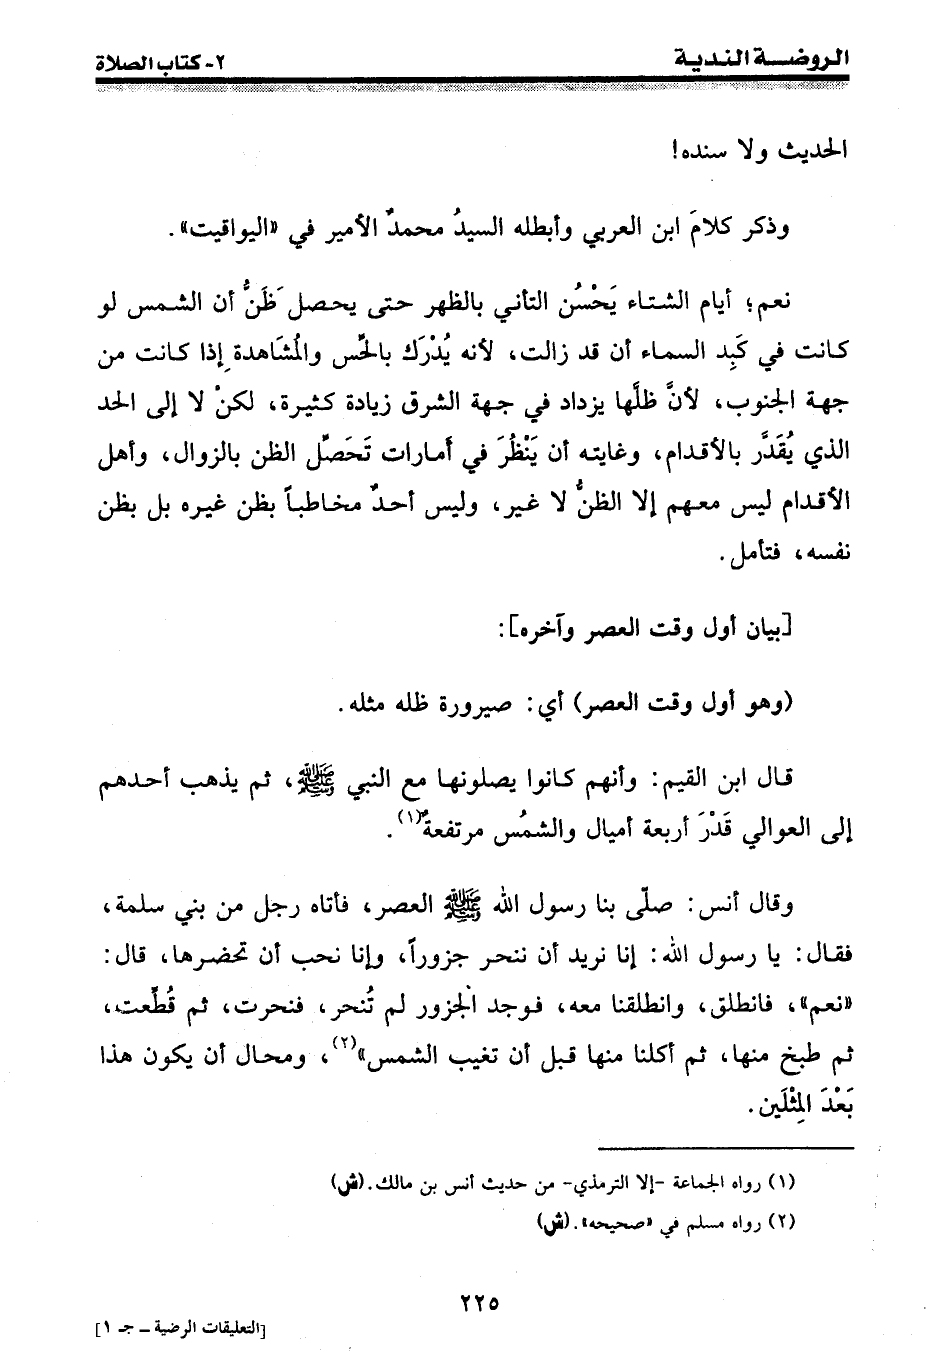 الروضـــة النـدية
٢- كتاب الصلاة
الحديث ولا سنده!
وذكر كلامَ ابن العربي وأبطله السيدُ محمدٌ الأمير في «اليواقيت».
نعم؛ أيام الشتاء يَحْسُن التأني بالظهر حتى يحصل ظَنُّ أن الشمس لو
كانت في كَبِد السماء أن قد زالت، لأنه يُدْرَك بالحِّس والمُشَاهدة إذا كانت من
جهة الجنوب، لأنَّ ظلَّها يزداد في جهة الشرق زيادة كثيرة، لكنْ لا إلى الحد
الذي يُقَدَّر بالأقدام، وغايته أن يَنْظُرَ في أمارات تَحَصِّل الظن بالزوال، وأهل
الأقدام ليس معهم إلا الظنُّ لا غير، وليس أحدٌ مخاطباً بظن غيره بل بظن
نفسه، فتأمل.
[بيان أول وقت العصر وآخره]:
(وهو أول وقت العصر) أي: صيرورة ظله مثله.
قال ابن القيم: وأنهم كانوا يصلونها مع النبي ﷺ، ثم يذهب أحدهم
إلى العوالي قَدْرَ أربعة أميال والشمُس مرتفعةٌ(١).
وقال أنس: صلّى بنا رسول الله ﷺ العصر، فأتاه رجل من بني سلمة،
فقال: يا رسول الله: إنا نريد أن ننحر جزوراً، وإنا نحب أن تحضرها، قال:
«نعم»، فانطلق، وانطلقنا معه، فوجد الجزور لم تُنحر، فنحرت، ثم قُطِّعت،
ثم طبخ منها، ثم أكلنا منها قبل أن تغيب الشمس»(٢)، ومحال أن يكون هذا
بَعْدَ المِثْلَين.
(١) رواه الجماعة -إلا الترمذي- من حديث أنس بن مالك.(ش)
(٢) رواه مسلم في «صحيحه».(ش)
٢٢٥
[التعليقات الرضية – جـ ١]